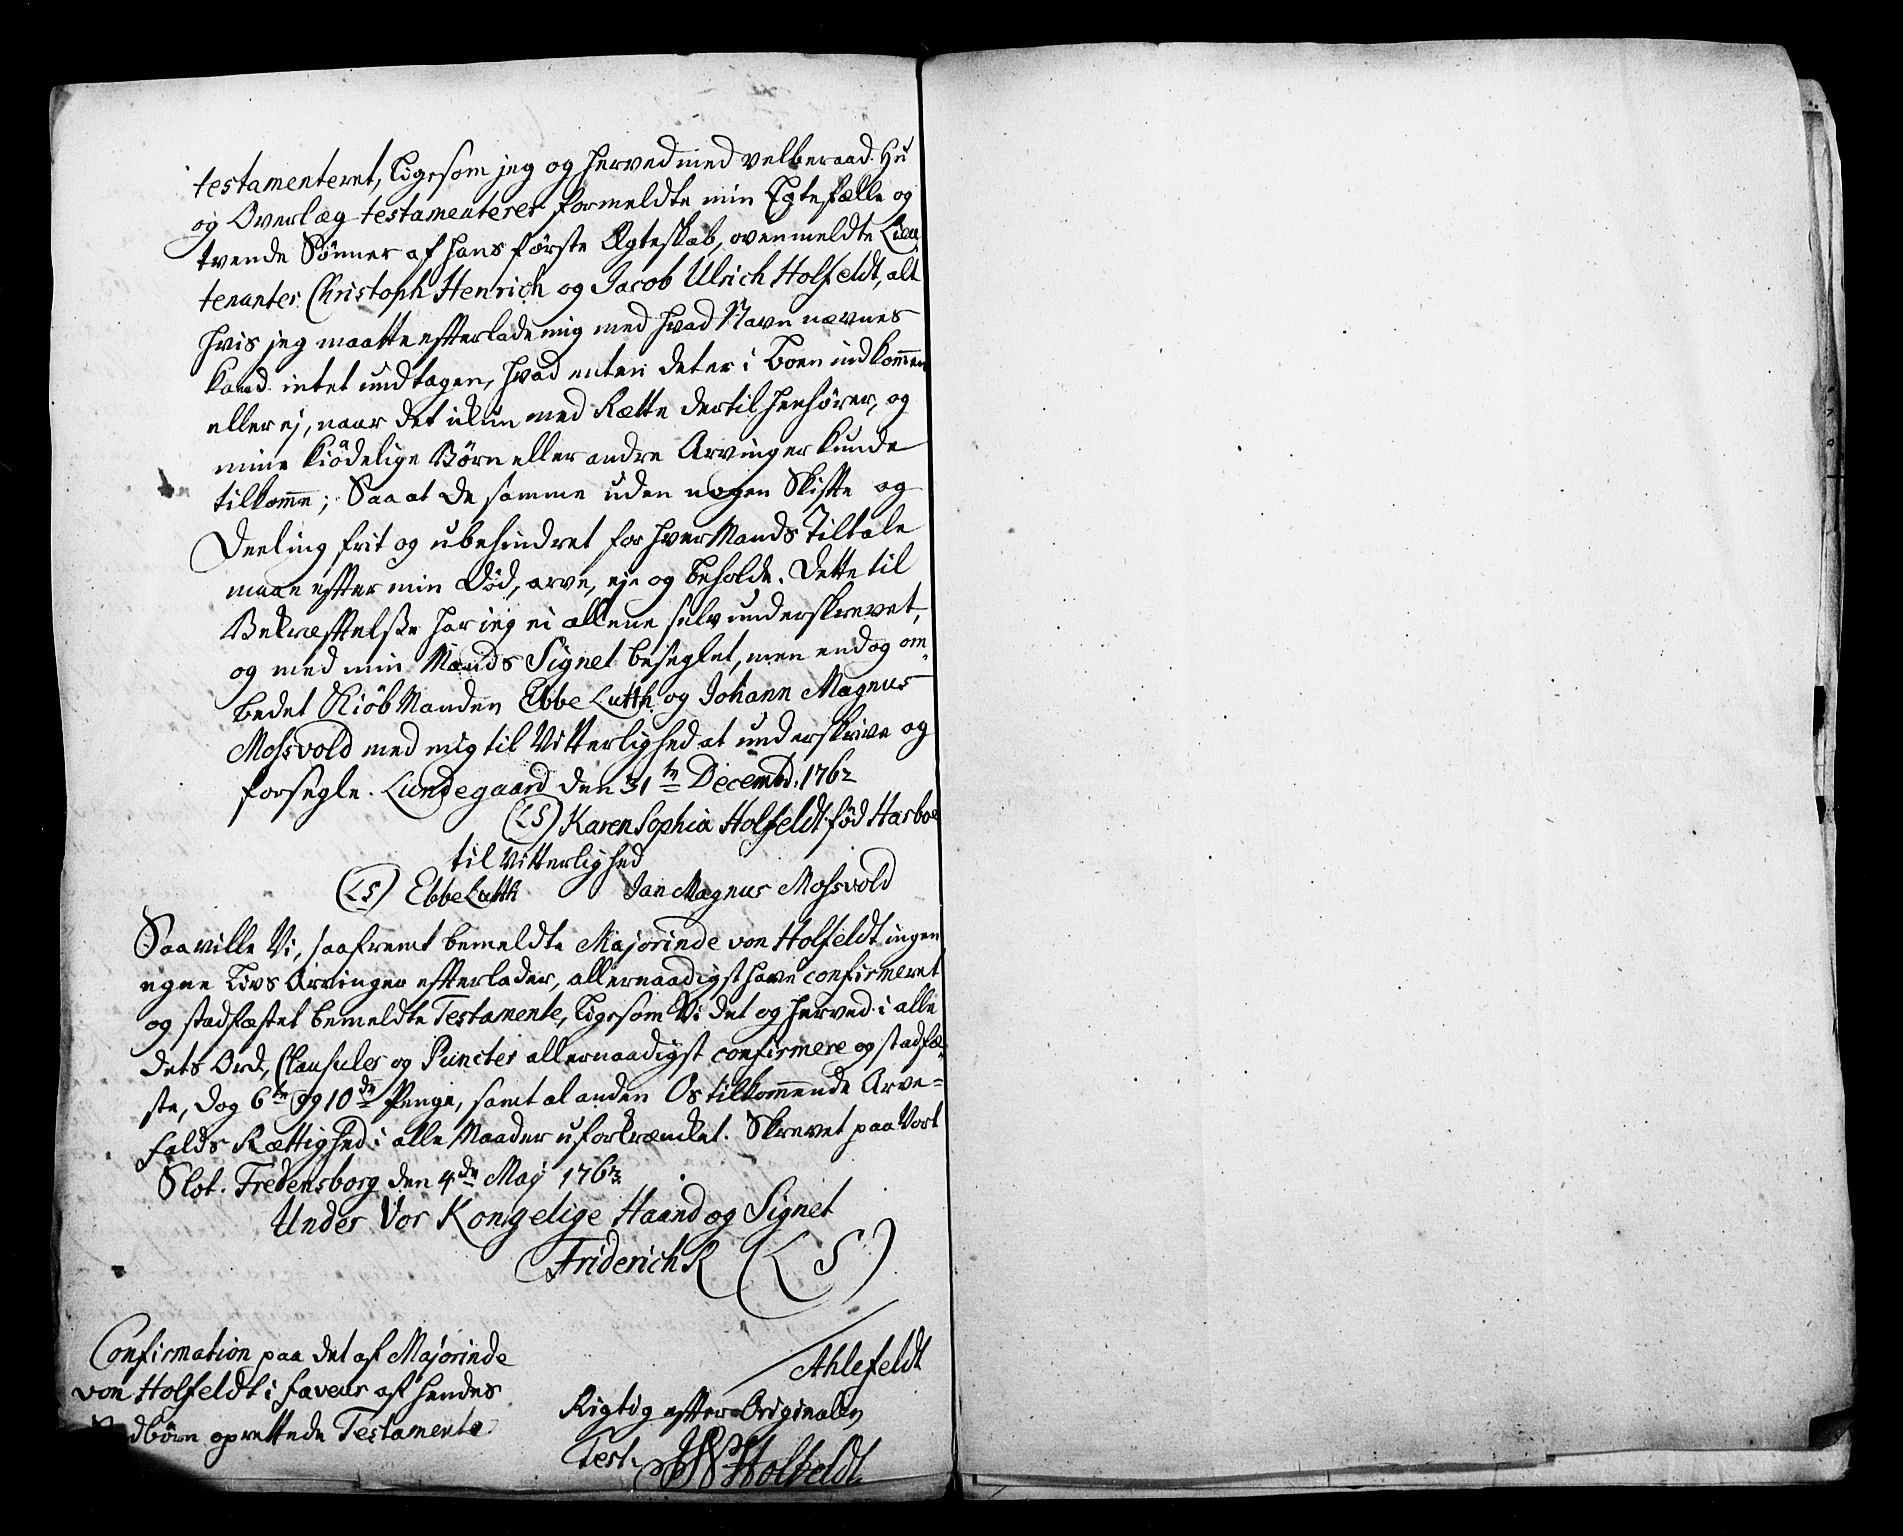 testamenteret, Ligesom jeg og herved med velberaad Hu
og Overlæg testamenterer formeldte min Egtefælle og
tvende Sönner af hans förste Ægteskab, ovenmeldte Lieu
tenanter Christoph Henrich og Jacob Ulrich Holfeldt, alt
hvis jeg maatte efterlade mig med hvad Navn nævnes
kand intet undtagen, hvad enten det er i Boen indkom̅en
eller ej, naar det ikun med Rætte dertil henhörer, og
mine kiödelige Börn eller andre Arvinger kunde
tilkom̅e; Saa at de samme uden nogen Skifte og
Deeling frit og ubehindret for hver Mands Tiltale
maae efter min Död, arve, eje og beholde. Dette til
Bekræftelse har jeg ei allene selv underskrevet,
og med min Mands Signet beseglet, men endog om
bedet Kiöb Manden Ebbe Lutth og Johann Magnus
Mossvold med mig til Vitterlighed at underskrive og
forsegle. Lundegaard den 31te Decembr: 1762
(LS) Karen Sophia Holfeldt föd Harboe
til Vitterlighed
(LS) Ebbe Lutth Jan Magnus Mossvold
Saa ville Vi, saafremt bemeldte Majorinde von Holfeldt ingen
egne Livs Arvinger efterlader, allernaadigst have confirmeret
og stadfæstet bemeldte Testamente, Ligesom Vi det og herved i alle
dets Ord, Clausuler og Puncter allernaadigst confirmere og stadfæ-
ste, dog 6te og 10de Penge, samt al anden Os tilkom̅ende Arve=
falds Rættighed i alle Maader uforkræncket. Skrevet paa Vort
Slot Fredensborg den 4de Maj 1763
Under Vor Kongelige Haand og Signet
Friderich R (LS)
Ahlefeldt
Confirmation paa det af Majorinde
von Holfeldt i faveur af hendes
Stedbörn oprettede Testamente
Rigtig efter Originalen
Test. Holfeldt